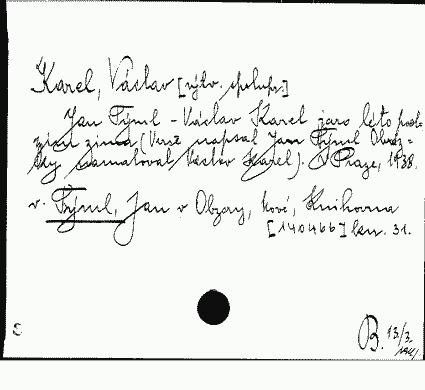 Karel, Václav [výtv. spolupr.]
Jan Týml - Václav Karel jaro léto pod-
zim zima (Verše napsal Jan Týml Obráz-
ky namaloval Václav Karel). V Praze, 1938.
v. Týml, Jan v Obzory, Nové, Knihovna
[140466] len. 31.
B. 13/3.